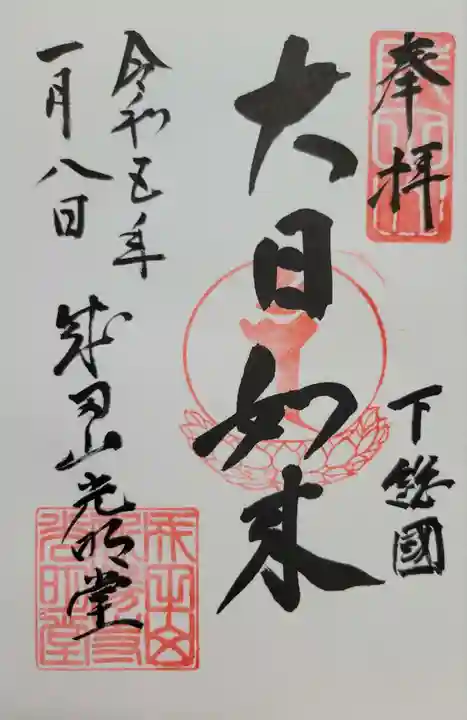 奉拝
下総國
大日如来
令和五年
一月八日
成田山光明堂